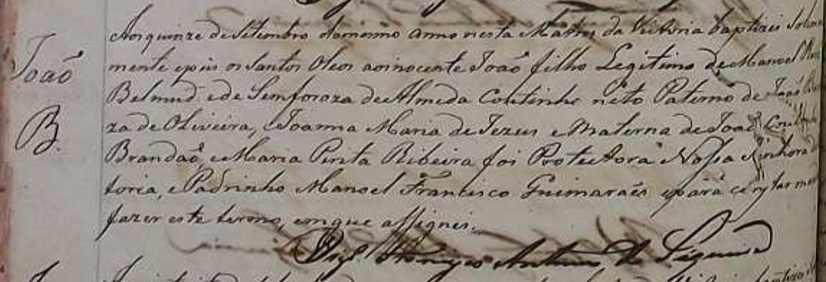 João
B.
Aos quinze de Setembro do mesmo anno nesta Matriz da Victoria baptizei Solem
mente epus os Santos Oleos ao inocente João filho Legitimo de Manoel
Belmud. e de Sinforoza de Almeda Coutinho neto Paterno de João
za de Oliveira, e Joanna Maria de Jezus e Materna de João
Brandaõ, e Maria Pinta Ribeira foi Protectora Nossa Senhora
toria, e Padrinho Manoel Francisco Guimaraẽs epara constar
fazer este termo, em que assignei.
Antunes de Siqueira